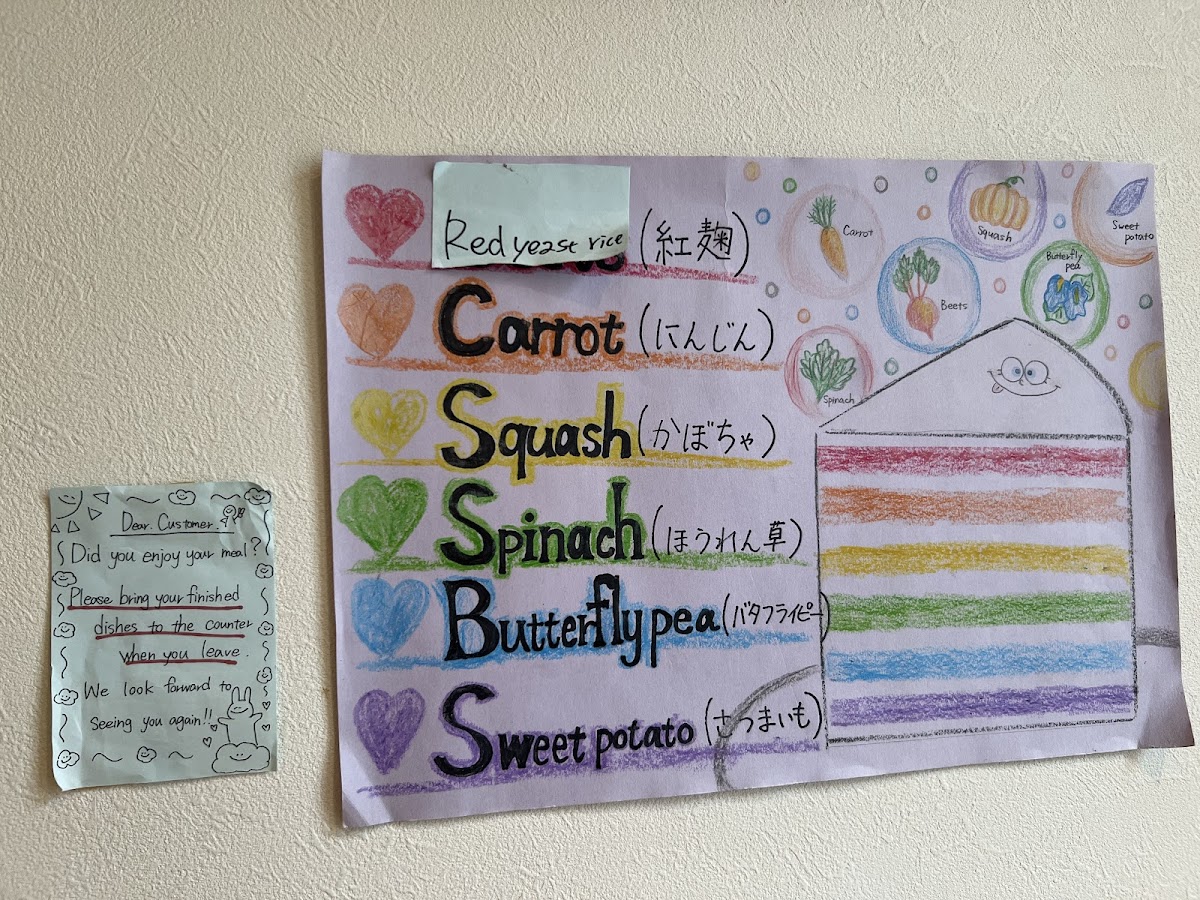 Dear. Customer.
Did you enjoy your meal?
Please bring your finished
dishes to the counter
when you leave.
We look forward to
seeing you again!!
Red yeast rice (紅麹)
Carrot (にんじん)
Squash (かぼちゃ)
Spinach (ほうれん草)
Butterfly pea (バタフライピー)
Sweet potato (さつまいも)
Carrot
Squash
Sweet
potato
Beets
Butterfly
pea
Spinach